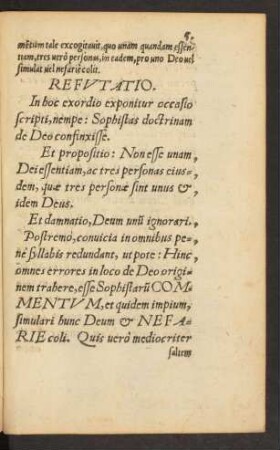 5.
mẽtum tale excogitauit, quo unam quandam essen-
tiam, tres uerò personas, in eadem, pro uno Deo uel
simulat uel nefariè colit.
REFVTATIO.
In hoc exordio exponitur occasio
scripti, nempe: Sophistas doctrinam
de Deo confinxisse.
Et propositio: Non esse unam,
Dei essentiam, ac tres personas eius-
dem, quæ tres personæ sint unus &
idem Deus.
Et damnatio, Deum unũ ignorari.
Postremò, conuicia in omnibus pe-
nè syllabis redundant, ut pote: Hinc
omnes errores in loco de Deo origi-
nem trahere, esse Sophistarũ COM-
MENTVM, et quidem impium,
simulari hunc Deum & NEFA-
RIE coli. Quis uerò mediocriter
saltem